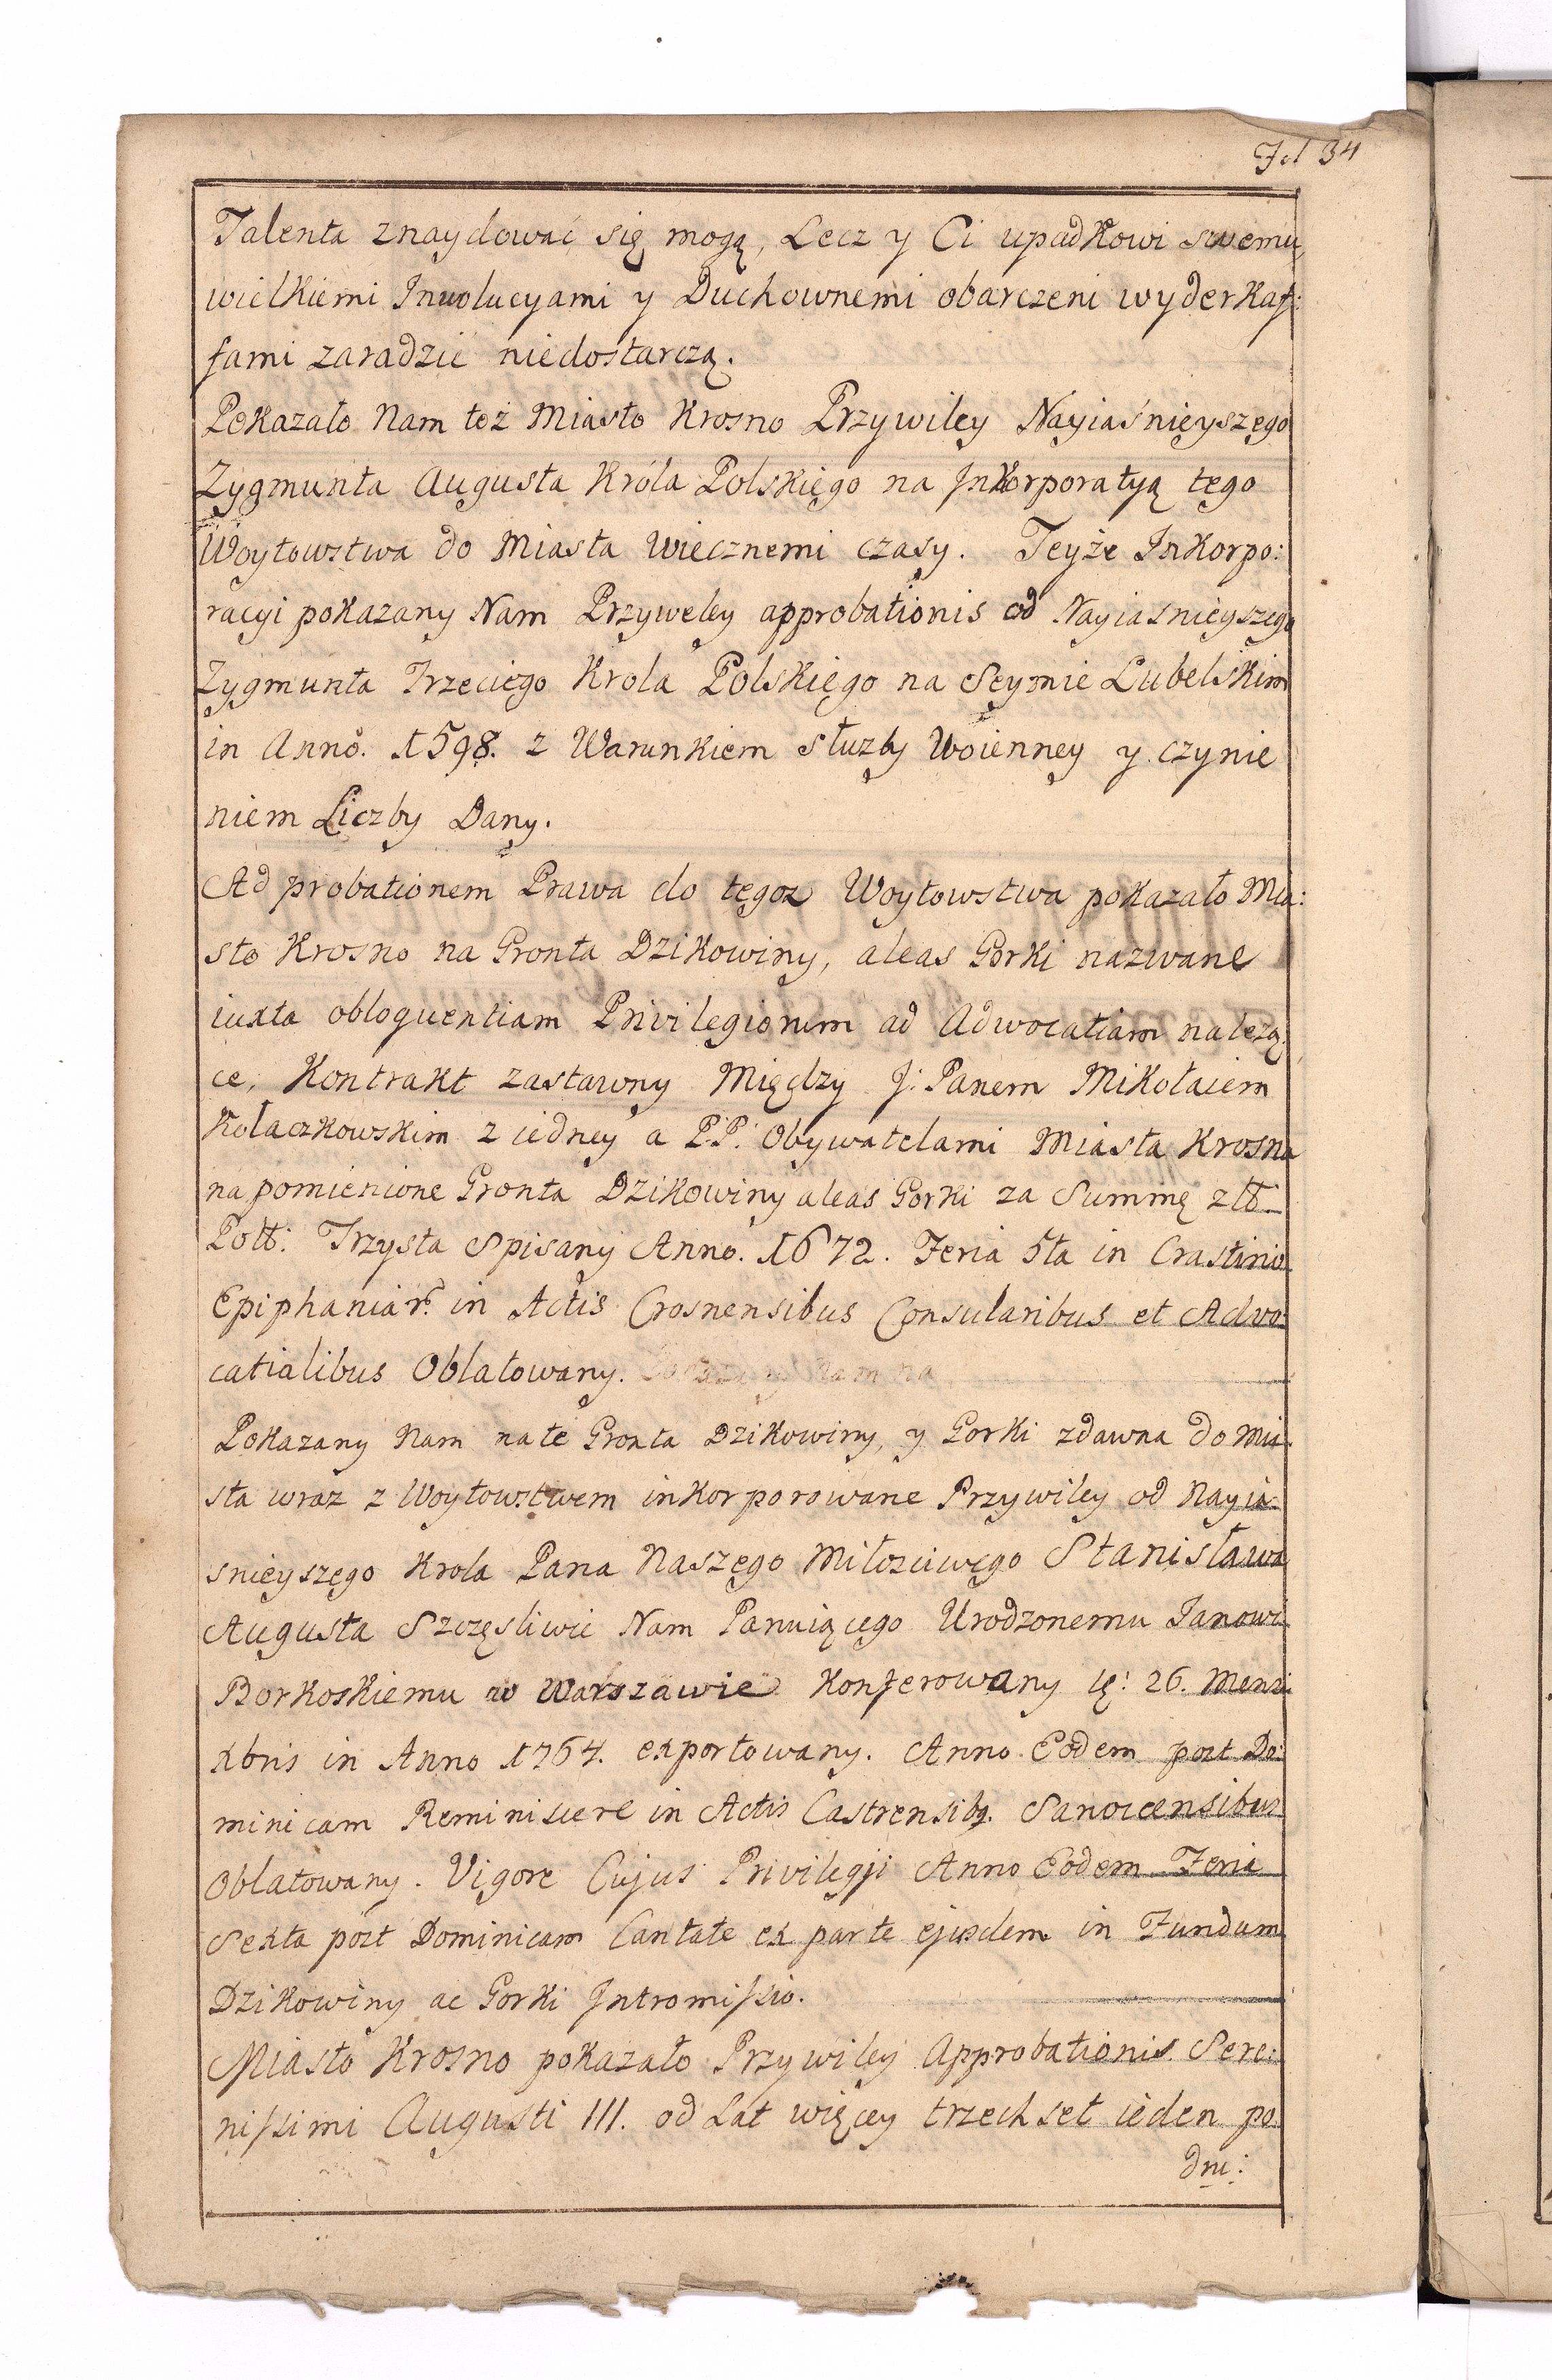 Fol 34
Talenta znaydować się mogą, Lecz y Ci upadkowi swemu,
wielkiemi Inwolucyami y Duchownemi obarczeni wyderkaf:
fami zaradzić niedostarczą.
Pokazało Nam też Miasto Krosno Przywiley Nayiaśnieyszego
Zygmunta Augusta Króla Polskiego na Inkorporatyą tego
Woytowstwa do Miasta Wiecznemi czasy. Teyże Inkorpo:
racyi pokazany Nam Przyweley approbationis od Nayiasnieyszego
Zygmunta Trzeciego Krola Polskiego na Seymie Lubelskim
in Anno. 1598. z Warunkiem służby Woienney y czynie
niem Liczby Dany.
Ad probationem Prawa do tegoz Woytowstwa pokazało Mia:
sto Krosno na Gronta Dzikowiny, aleas Gorki nazwane
iuxta obloquentiam Privilegiorum ad Adwocatiam należą
ce, Kontrakt zastawny Między J: Panem Mikołaiem
Kołaczkowskim z iedney a P.P. Obywatelami Miasta Krosna
na pomienione Gronta Dzikowiny aleas Gorki za Summę złł
Polł: Trzysta Spisany Anno. 1672. Feria 5ta in Crastino
Epiphaniar. in Actis Crosnensibus Consularibus et Advo:
catialibus Oblatowany.
Pokazany Nam na te Gronta Dzikowiny, y Gorki zdawna do Mia
sta wraz z Woytowstwem inkorporowane Przywiley od Nayia
snieyszego Krola Pana Naszego Miłosciwego Stanisława
Augusta Szczęsliwie Nam Panuiącego Urodzonemu Janowi
Borkoskiemu w Warszawie Konferowany 26. Mensis
Xbris in Anno 1764. exportowany. Anno Eodem post Do:
minicam Reminiscere in Actis Castrensibq. Sanocensibus
Oblatowany. Vigore Cujus Privilegji Anno Eodem Feria
Sexta post Dominicam Cantate ex parte ejusdem in Fundum
Dzikowiny ac Gorki Intromissio.
Miasto Krosno pokazało Przywiley Approbationis Sere:
nissimi Augusti III. od Lat więcey trzechset ieden po
dni: